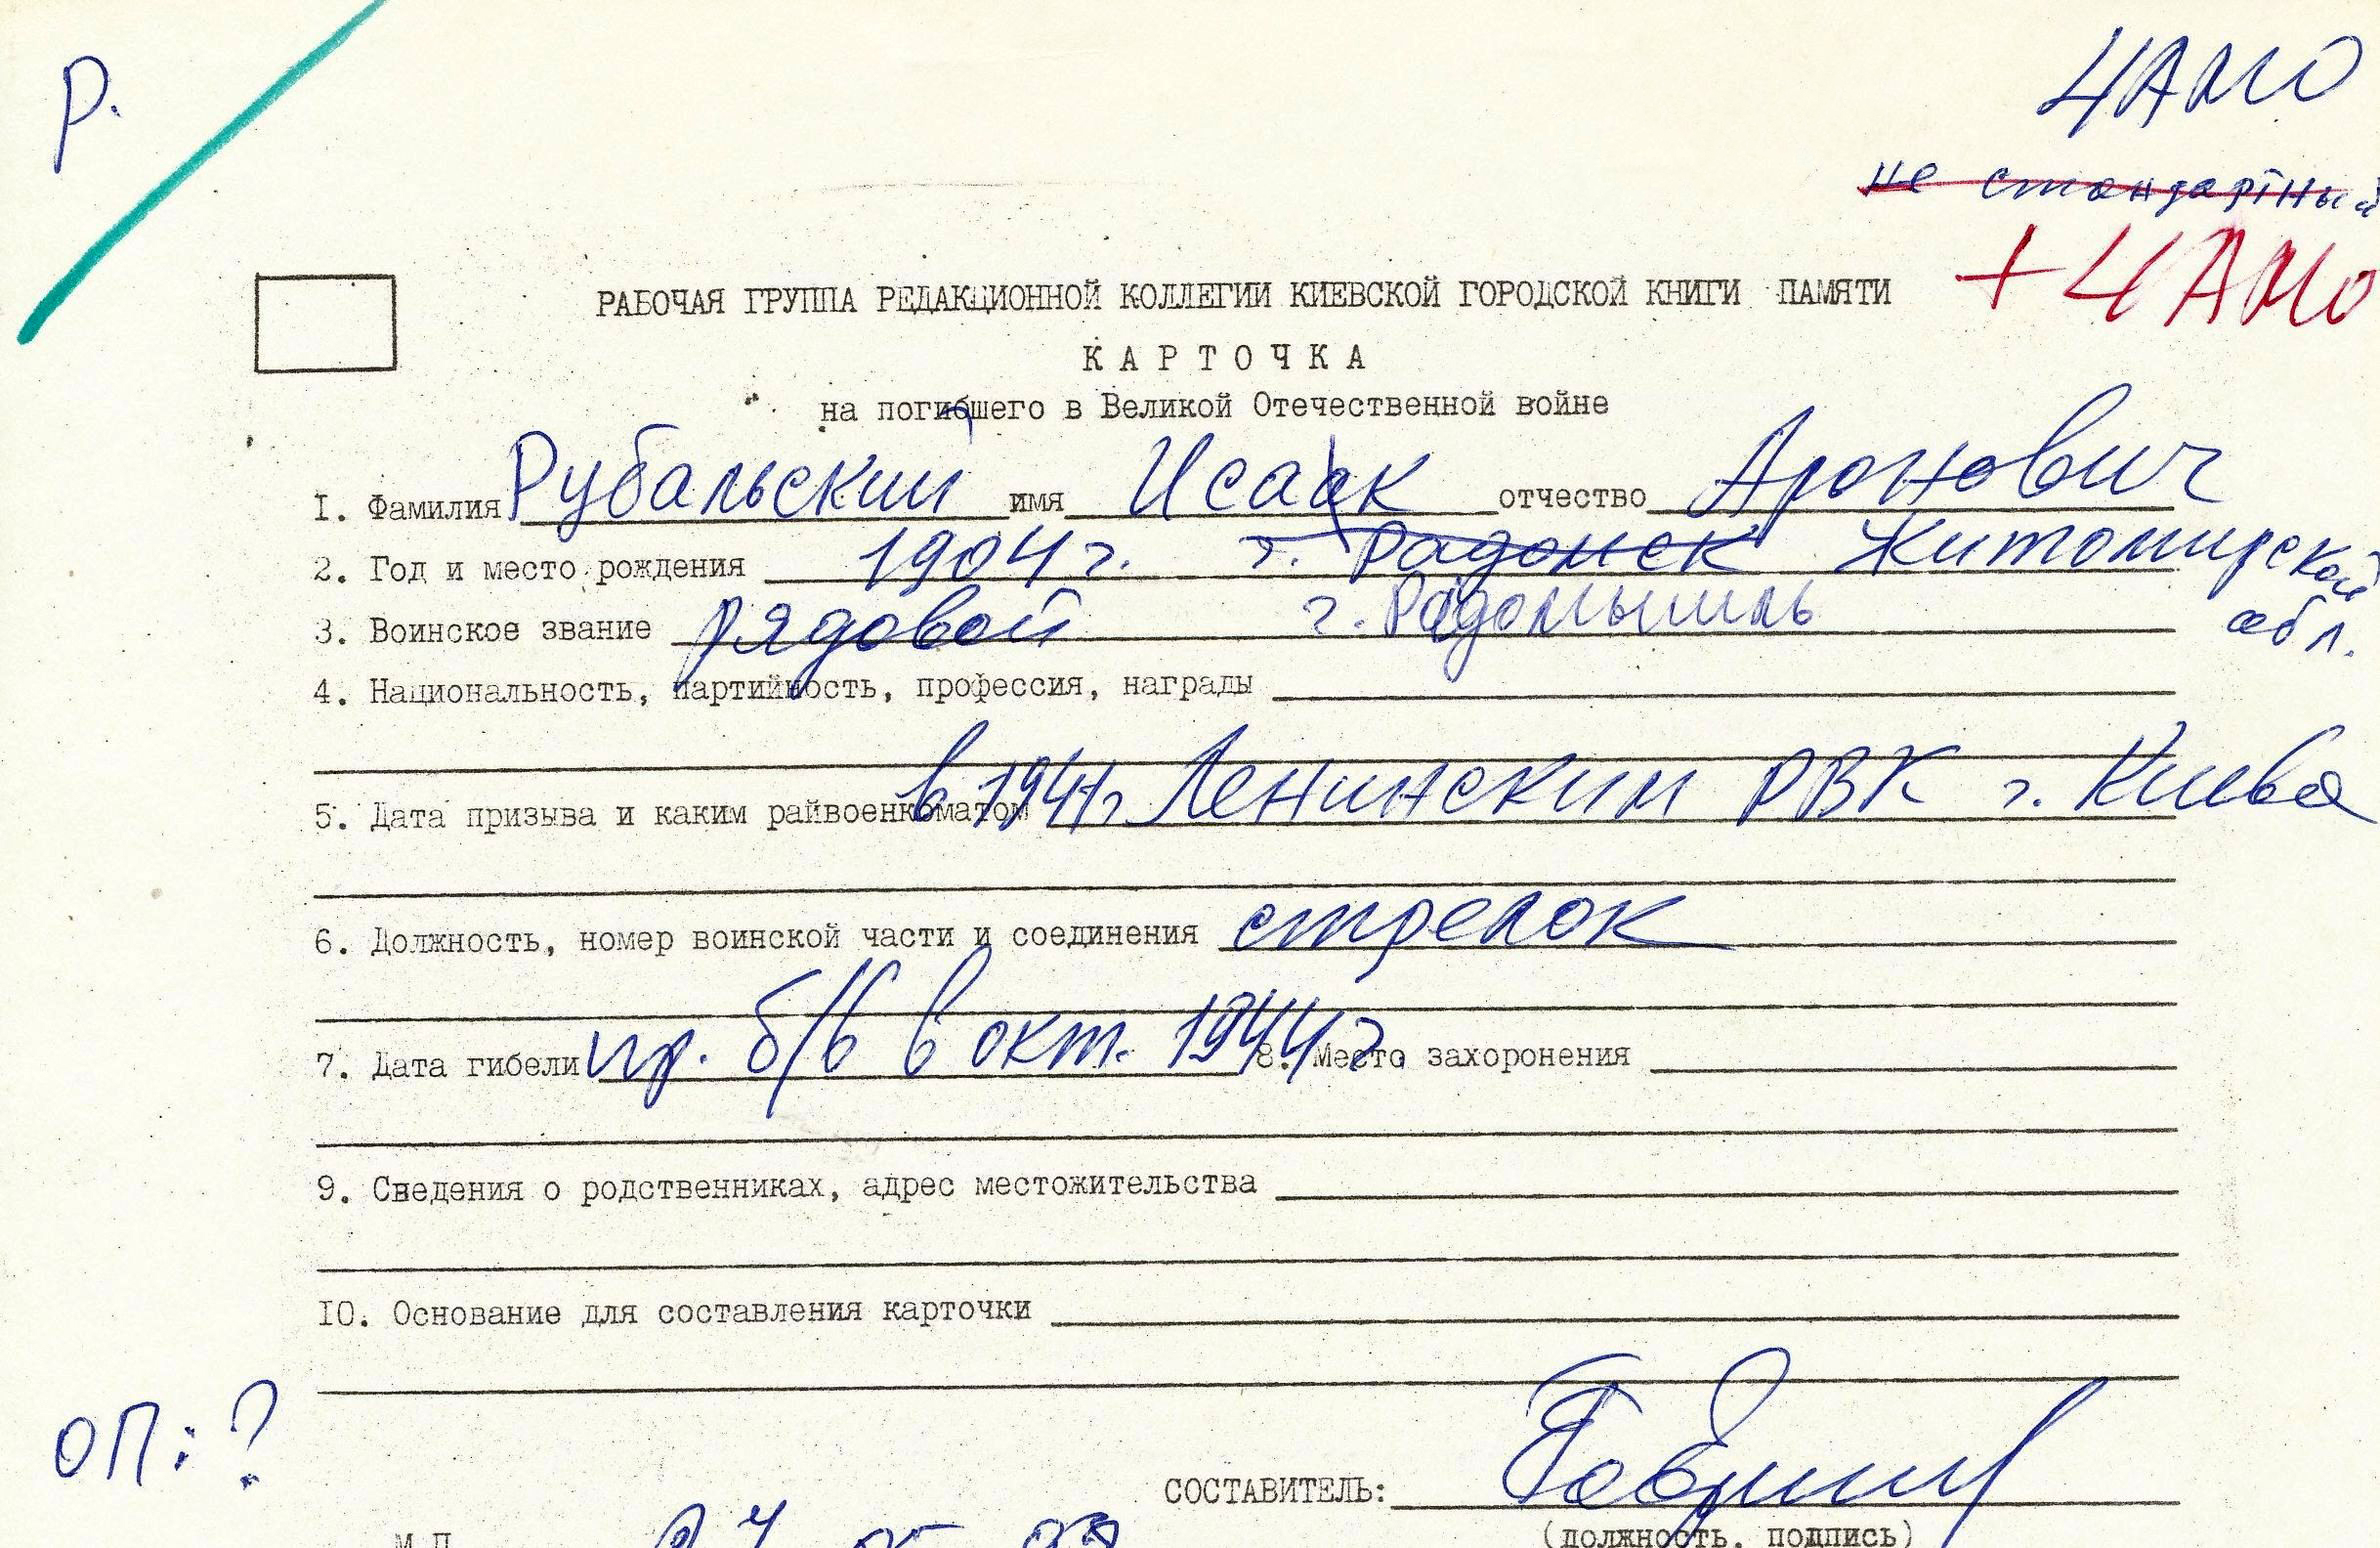 Р.
ЦАМО
не стандартный
+ ЦАМО
РАБОЧАЯ ГРУППА РЕДАКЦИОННОЙ КОЛЛЕГИИ КИЕВСКОЙ ГОРОДСКОЙ КНИГИ ПАМЯТИ
К А Р Т О Ч К А
на погибшего в Великой Отечественной войне
I. Фамилия Рубальский имя Исаак отчество Аронович
2. Год и место рождения 1904 г. г. Радомск Житомирской
3. Воинское звание рядовой г. Радомышль обл.
4. Национальность, партийность, профессия, награды
5. Дата призыва и каким райвоенкоматом в 1941г Ленинским РВК г. Киева
6. Должность, номер воинской части и соединения стрелок
7. Дата гибели пр. б/в в окт. 1944 г. 8. Место захоронения
9. Сведения о родственниках, адрес местожительства
IO. Основание для составления карточки
ОП: ?
СОСТАВИТЕЛЬ:
(должность, подпись)
М.П.